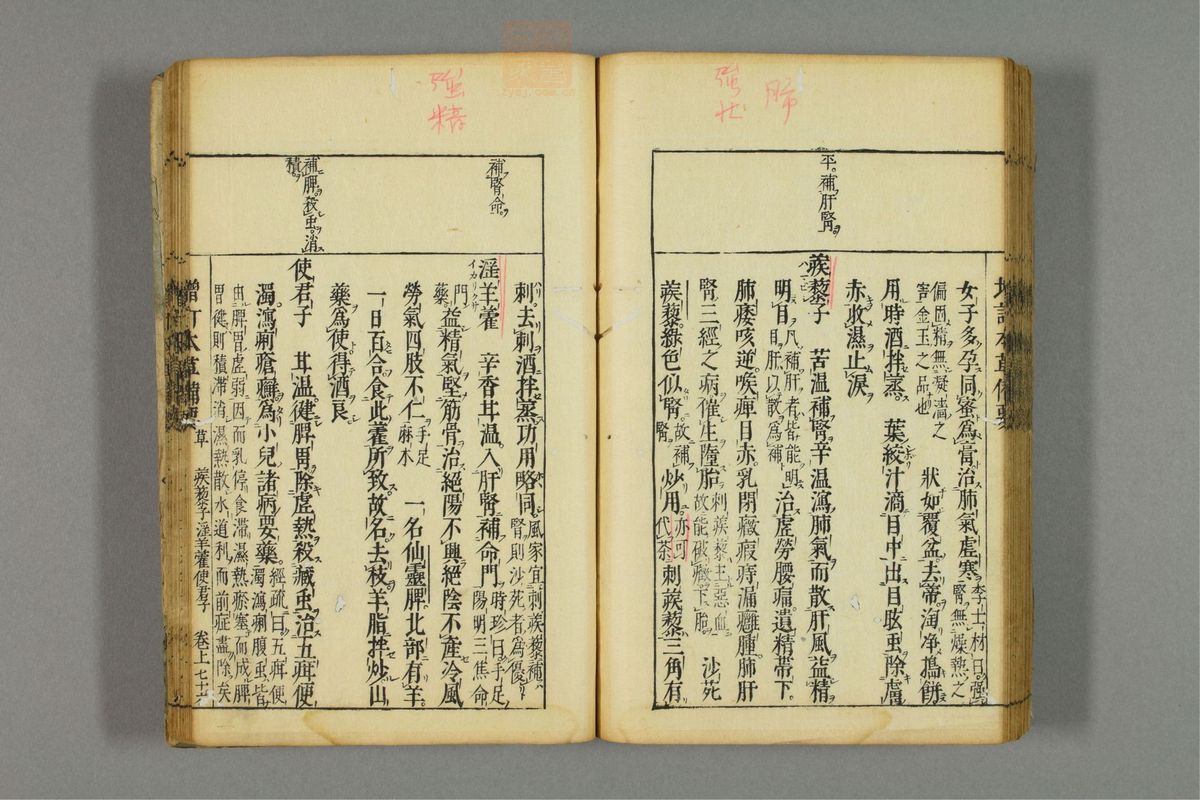 肺
強壯
平補肝腎
女子多孕同蜜為膏治肺氣虛寒李士材曰強腎無燥熱之
偏固精無凝濇之害金玉之品也 狀如覆盆去蒂淘淨搗餅
用時酒拌蒸 葉絞汁滴目中出目眩虫除膚
赤收濕止淚
蒺藜子 苦溫補腎辛溫瀉肺氣而散肝風益精
明目凡補肝者皆能明目肝以散為補 治虛勞腰痛遺精帶下
肺痿咳逆喉痺目赤乳閉癥瘕痔漏癰腫肺肝
腎三經之病催生墮胎刺蒺藜主惡血故能破癥下胎 沙苑
蒺藜綠色似腎故補腎 炒用亦可代茶刺蒺藜三角有
強精
補腎命
補脾殺虫消積
刺去刺酒拌蒸功用略同風家宜刺蒺藜補腎則沙苑者為優
淫羊藿 辛香甘溫入肝腎補命門時珍曰手足陽明三焦命
門藥益精氣堅筋骨治絕陽不興絕陰不產冷風
勞氣四肢不仁手足麻木 一名仙靈脾北部有羊
一日百合食此藿所致故名去枝羊脂拌炒山
藥為使得酒良
使君子 甘溫健脾胃除虛熱殺臟虫治五疳便
濁瀉痢瘡癬為小兒諸病要藥經疏曰五疳便濁瀉痢腹虫皆
由脾胃虛弱因而乳停食滯濕熱瘀塞而成脾胃健則積滯消濕熱散水道利而前症盡除矣
增訂本草備要 草 蒺藜子淫羊藿使君子 卷上七十